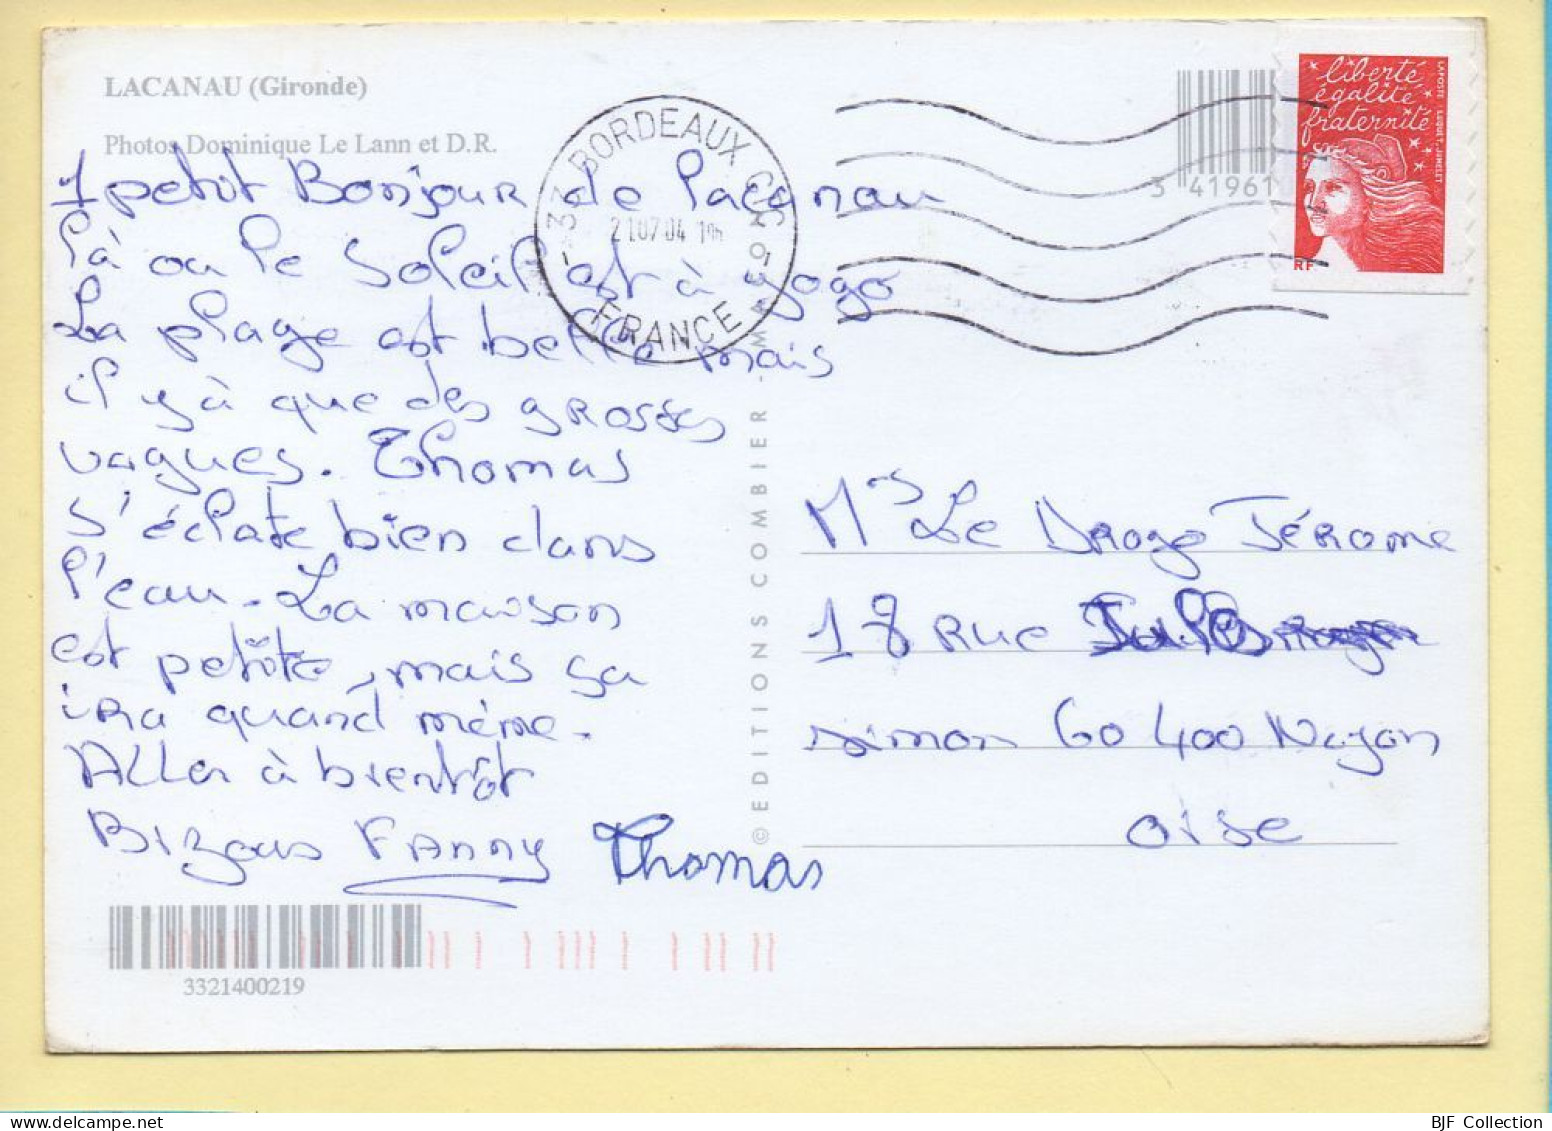 LACANAU (Gironde)
Photos Dominique Le Lann et D.R.
1 petit Bonjour de lacanau
là ou le soleil est à gogo
La plage est belle mais
il y à que des grosses
vagues. Thomas
s'éclate bien dans
l'eau. La maison
est petite, mais sa
ira quand même.
Aller à bientôt
Bizous Fanny Thomas
3321400219
33 BORDEAUX
21 07 04
FRANCE
© EDITIONS COMBIER MACON
3 41961
liberté
égalité
fraternité
RF
LA POSTE
LUQUET, JUMELET
Mrs Le Drogo Jérome
18 Rue Jules
simon 60 400 Noyon
oise
BJF Collection